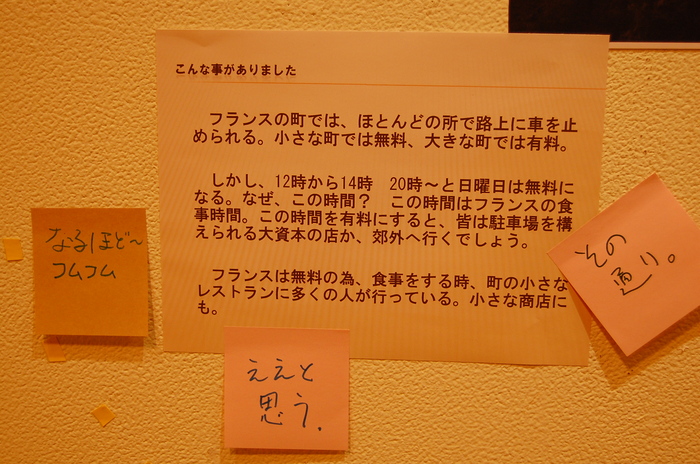 こんな事がありました
フランスの町では、ほとんどの所で路上に車を止
められる。小さな町では無料、大きな町では有料。
しかし、12時から14時　20時～と日曜日は無料に
なる。なぜ、この時間？　この時間はフランスの食
事時間。この時間を有料にすると、皆は駐車場を構
えられる大資本の店か、郊外へ行くでしょう。
フランスは無料の為、食事をする時、町の小さな
レストランに多くの人が行っている。小さな商店に
も。
なるほど～
フムフム
ええと
思う.
その
通り。